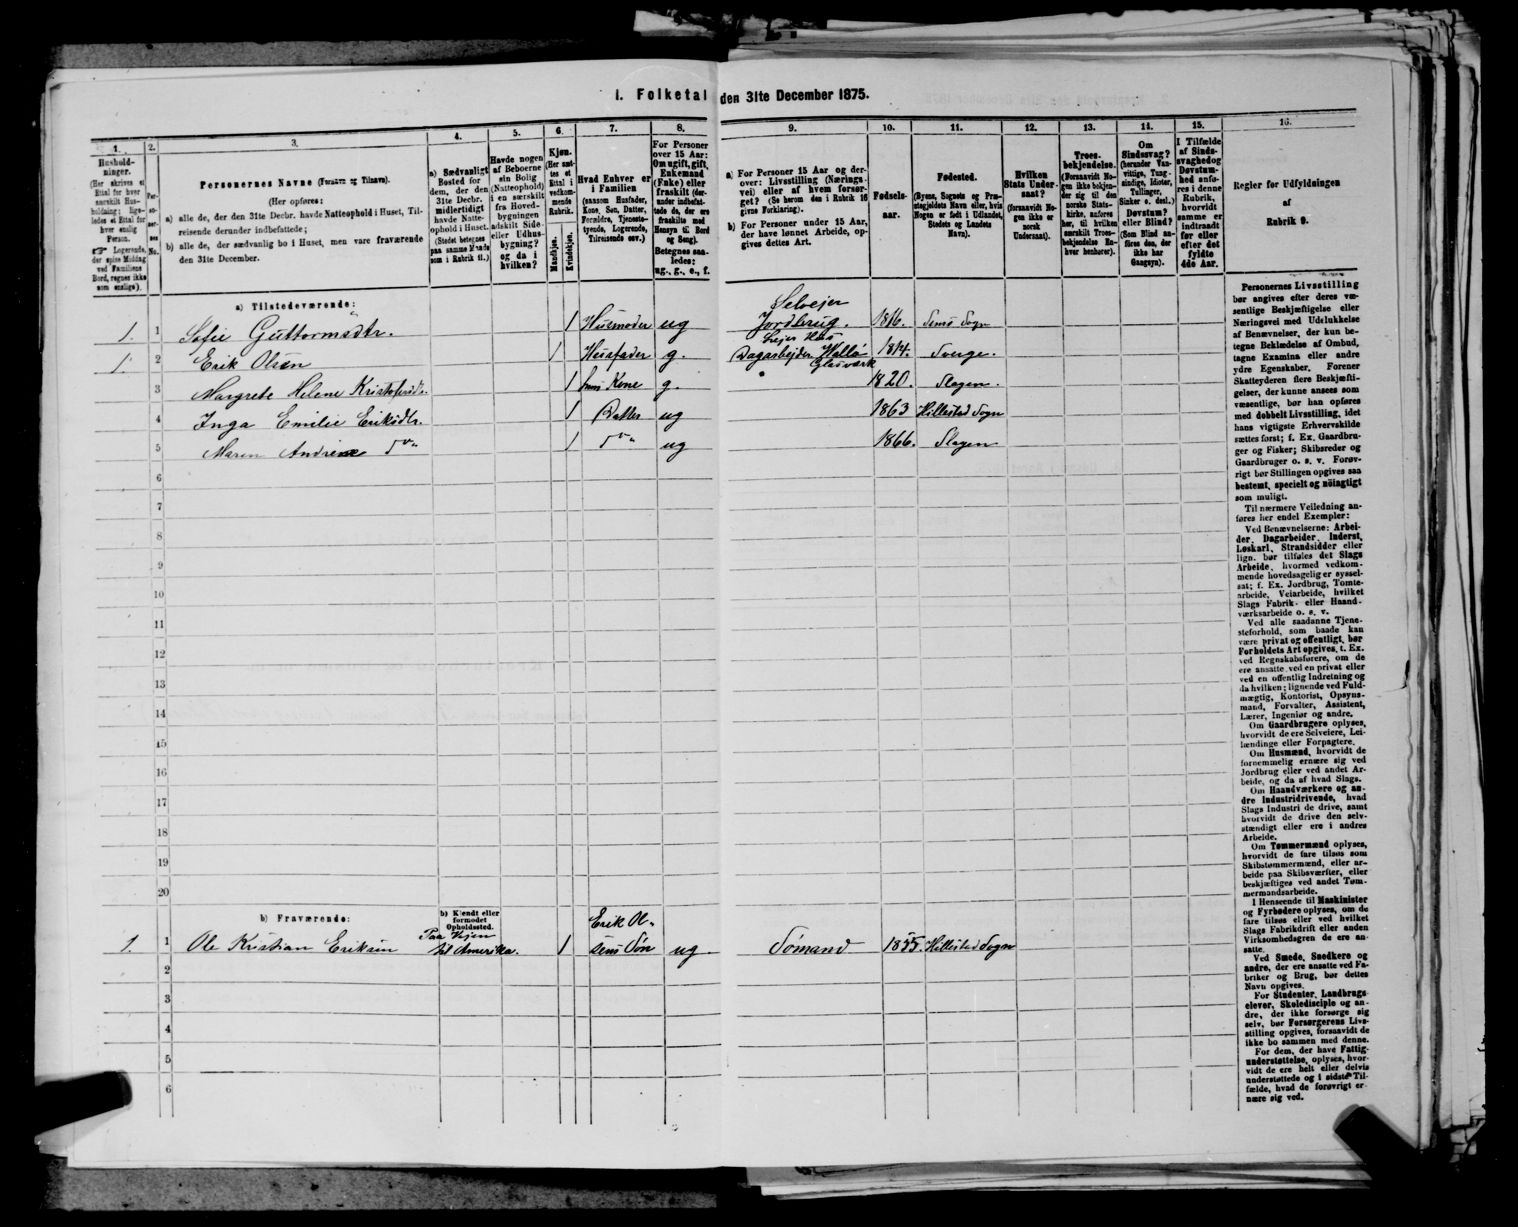 1. Folketal den 31te December 1875.
1.
Hushold-
ninger.
(Her skrives et
Ettal for hver
særskilt Hus-
holdning; lige-
ledes et Ettal for
hver enslig
Person.
Logerende,
der spise Middag
ved Familiens
Bord, regnes ikke
som enslige).
2.
Per-
so-
ner-
nes
No.
3.
Personernes Navne (Fornavn og Tilnavn).
(Her opføres:
a) alle de, der den 31te Decbr. havde Natteophold i Huset, Til-
reisende derunder indbefattede;
b) alle de, der sædvanlig bo i Huset, men vare fraværende
den 31te December.
4.
a) Sædvanligt
Bosted for
dem, der den
31te Decbr.
midlertidigt
havde Natte-
ophold i Huset.
(Stedet betegnes
paa samme Maade
som i Rubrik 11.)
5.
Havde nogen
af Beboerne
sin Bolig
(Natteophold)
i en særskilt
fra Hoved-
bygningen
adskilt Side-
eller Udhus-
bygning?
og da i
hvilken?
6.
Kjøn.
(Her sæt-
tes et
Ettal i
vedkom-
mende
Rubrik.
Mandkjøn.
Kvindekjøn.
7.
Hvad Enhver er
i Familien
(saasom Husfader,
Kone, Søn, Datter,
Forældre, Tjeneste-
tyende, Logerende,
Tilreisende osv.)
8.
For Personer
over 15 Aar:
Om ugift, gift,
Enkemand
(Enke) eller
fraskilt (der-
under indbefat-
tede de, der ere
fraskilte med
Hensyn til Bord
og Seng).
Betegnes saa-
ledes:
ug., g., e., f.
9.
a) For Personer 15 Aar og der-
over: Livsstilling (Nærings-
vei) eller af hvem forsør-
get? (Se herom den i Rubrik 16
givne Forklaring).
b) For Personer under 15 Aar,
der have lønnet Arbeide, op-
gives dettes Art.
10.
Fødsels-
aar.
11.
Fødested.
(Byens, Sognets og Præ-
stegjeldets Navn eller, hvis
Nogen er født i Udlandet,
Stedets og Landets
Navn).
12.
Hvilken
Stats Under-
saat?
(forsaavidt No-
gen ikke er
norsk
Undersaat).
13.
Troes-
bekjendelse.
(Forsaavidt No-
gen ikke bekjen-
der sig til den
norske Stats-
kirke, anføres
her, til hvilken
særskilt Troes-
bekjendelse En-
hver henhører).
14.
Om
Sindssvag?
(herunder Van-
vittige, Tung-
sindige, Idioter,
Tullinger,
Sinker o. desl.)
Døvstum?
eller Blind?
(Som Blind an-
føres den, der
ikke har
Gangsyn).
15.
I Tilfælde
af Sinds-
svaghed og
Døvstum-
hed anfø-
res i denne
Rubrik,
hvorvidt
samme er
indtraadt
før eller
efter det
fyldte
4de Aar.
16.
Regler for Udfyldningen
af
Rubrik 9.
a) Tilstedeværende:
Selveier
1. 1 Sofie Guttormsdtr. 1 Husmoder ug Jordbrug. 1816. Sems Sogn
Leier Hus
1. 2 Erik Olsen 1 Husfader g. Dagarbejder Vallø 1814. Sverge.
Glasværk
3 Margrete Helene Kristofersdtr. 1 hans Kone g. 1820. Slagen.
4 Inga Emilie Eriksdtr. 1 Datter ug 1863 Hillestad Sogn
5 Maren Andrine do 1 do ug 1866. Slagen
6
7
8
9
10
11
12
13
14
15
16
17
18
19
20
b) Fraværende:
b) Kjendt eller
formodet
Opholdssted.
Paa Rejen Erik Ol-
1. 1 Ole Kristian Eriksen til Amerika. 1 sens Søn ug. Sømand 1855. Hillestad Sogn
2
3
4
5
6
Personernes Livsstilling
bør angives efter deres væ-
sentlige Beskjæftigelse eller
Næringsvei med Udelukkelse
af Benævnelser, der kun be-
tegne Beklædelse af Ombud,
tagne Examina eller andre
ydre Egenskaber. Forener
Skatteyderen flere Beskjæfti-
gelser, der kunne ansees som
væsentlige, bør han opføres
med dobbelt Livsstilling, idet
hans vigtigste Erhvervskilde
sættes først; f. Ex. Gaardbru-
ger og Fisker; Skibsreder og
Gaardbruger o. s. v. Forøv-
rigt bør Stillingen opgives saa
bestemt, specielt og nøiagtigt
som muligt.
Til nærmere Veiledning an-
føres her endel Exempler:
Ved Benævnelserne: Arbei-
der, Dagarbeider, Inderst,
Løskarl, Strandsidder eller
lign. bør tilføies det Slags
Arbeide, hvormed vedkom-
mende hovedsagelig er syssel-
sat; f. Ex. Jordbrug, Tomte-
arbeide, Veiarbeide, hvilket
Slags Fabrik- eller Haand-
værksarbeide o. s. v.
Ved alle saadanne Tjene-
steforhold, som baade kan
være privat og offentligt, bør
Forholdets Art opgives, t. Ex.
ved Regnskabsførere, om de
ere ansatte ved en privat eller
ved en offentlig Indretning og
da hvilken; lignende ved Fuld-
mægtig, Kontorist, Opsyns-
mand, Forvalter, Assistent,
Lærer, Ingeniør og andre.
Om Gaardbrugere oplyses,
hvorvidt de ere Selveiere, Lei-
lændinge eller Forpagtere.
Om Husmænd, hvorvidt de
fornemmelig ernære sig ved
Jordbrug eller ved andet Ar-
beide, og da af hvad Slags.
Om Haandværkere og an-
dre Industridrivende, hvad
Slags Industri de drive, samt
hvorvidt de drive den selv-
stændigt eller ere i andres
Arbeide.
Om Tømmermænd oplyses,
hvorvidt de fare tilsøs som
Skibstømmermænd, eller ar-
beide paa Skibsværfter, eller
beskjæftiges ved andet Tøm-
mermandsarbeide.
I Henseende til Maskinister
og Fyrbødere oplyses, om de
fare tilsøs eller ved hvilket
Slags Fabrikdrift eller anden
Virksomhedsgren de ere an-
satte.
Ved Smede, Snedkere og
andre, der ere ansatte ved Fa-
briker og Brug, bør dettes
Navn opgives.
For Studenter, Landbrugs-
elever, Skoledisciple og an-
dre, der ikke forsørge sig
selv, bør Forsørgerens Livs-
stilling opgives, forsaavidt de
ikke bo sammen med denne.
For dem, der have Fattig-
understøttelse, oplyses, hvor-
vidt de ere helt eller delvis
understøttede og i sidste Til-
fælde, hvad de forøvrigt er-
nære sig ved.